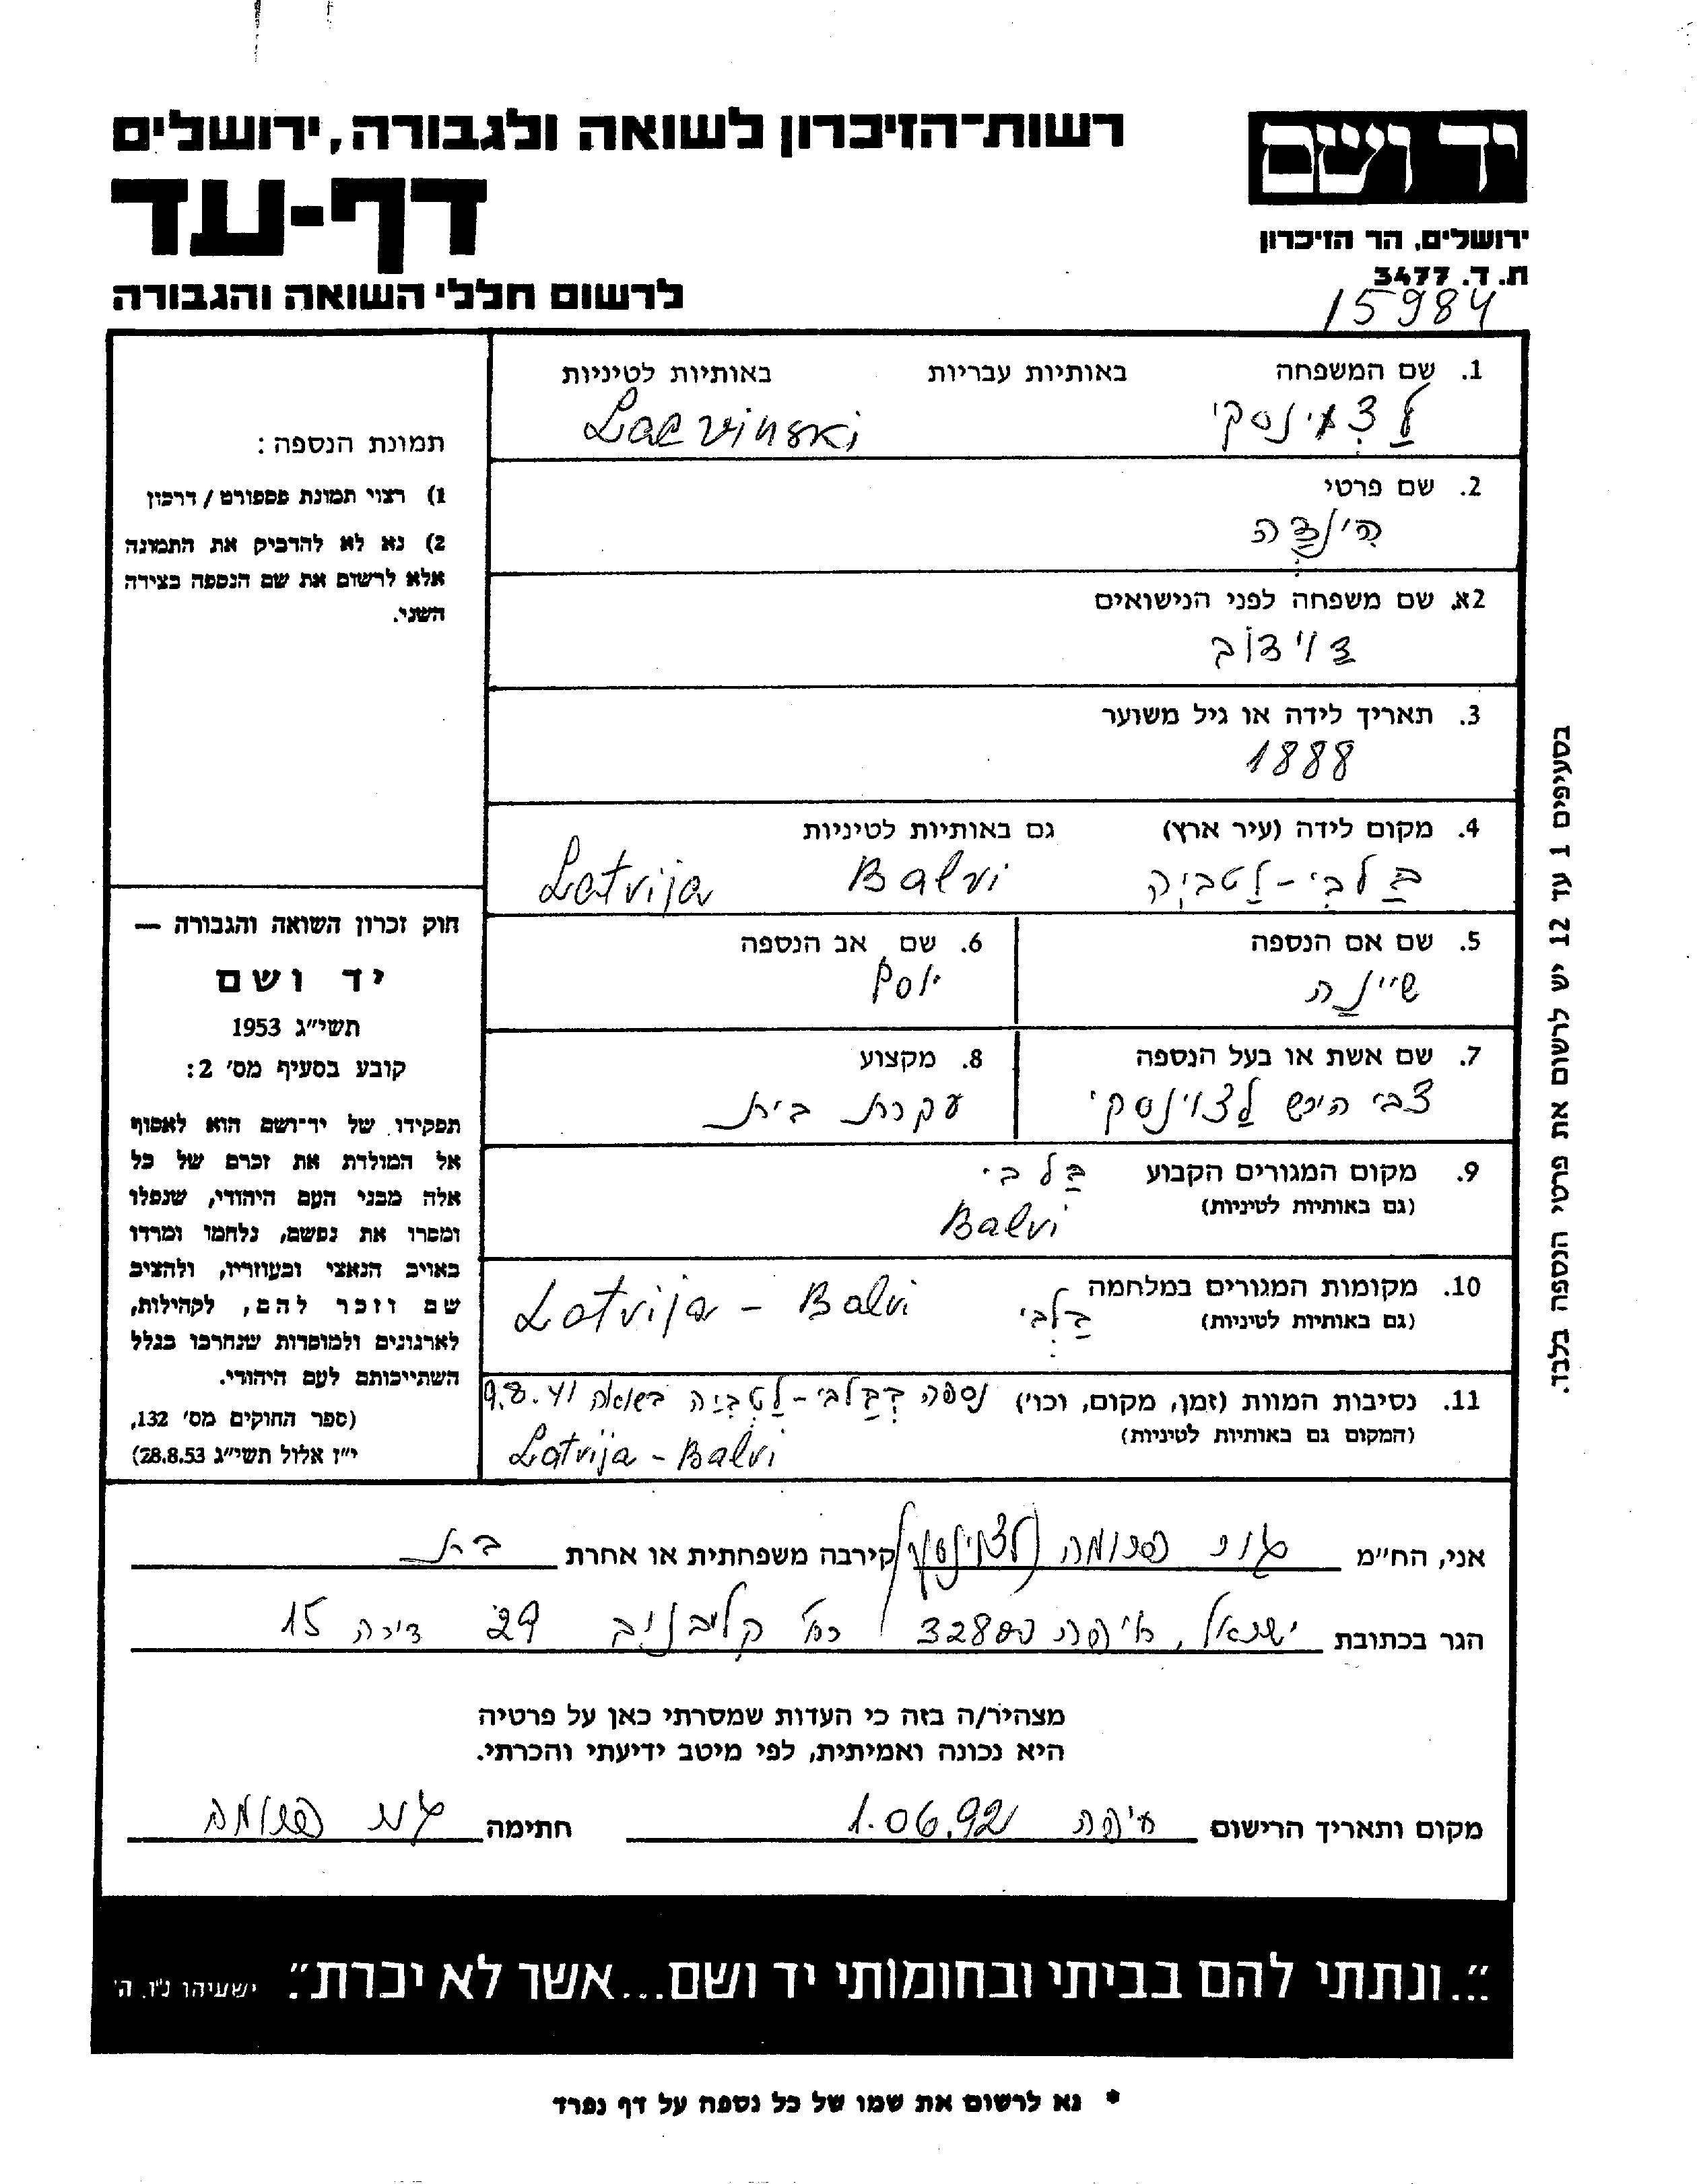 רשות־הזיכרון לשואה ולגבורה, ירושלים
דף-עד
לרשום חללי השואה והגבורה
יד ושם
ירושלים, הר הזיכרון
ת. ד. 3477
15984
1. שם המשפחה באותיות עבריות באותיות לטיניות
Lacvinski
2. שם פרטי
הינדה
2א. שם משפחה לפני הנישואים
דוידוב
3. תאריך לידה או גיל משוער
1888
4. מקום לידה (עיר ארץ) גם באותיות לטיניות
בלבי - לטביה Balvi Latvija
5. שם אם הנספה
שיינה
6. שם אב הנספה
יוסף
7. שם אשת או בעל הנספה
צבי הירש לצוינסקי
8. מקצוע
עקרת בית
9. מקום המגורים הקבוע בלבי
(גם באותיות לטיניות)
Balvi
10. מקומות המגורים במלחמה בלבי Latvija - Balvi
(גם באותיות לטיניות)
11. נסיבות המוות (זמן, מקום, וכו') נספה בבלבי - לטביה בשואה 9.8.41
(המקום גם באותיות לטיניות)
Latvija - Balvi
תמונת הנספה:
1) רצוי תמונת פספורט / דרכון
2) נא לא להדביק את התמונה
אלא לרשום את שם הנספה בצידה
השני.
חוק זכרון השואה והגבורה —
יד ושם
תשי״ג 1953
קובע בסעיף מס' 2:
תפקידו של יד־ושם הוא לאסוף
אל המולדת את זכרם של כל
אלה מבני העם היהודי, שנפלו
ומסרו את נפשם, נלחמו ומרדו
באויב הנאצי ובעוזריו, ולהציב
שם וזכר להם, לקהילות,
לארגונים ולמוסדות שנחרבו בגלל
השתייכותם לעם היהודי.
(ספר החוקים מס' 132,
י״ז אלול תשי״ג 28.8.53)
בסעיפים 1 עד 12 יש לרשום את פרטי הנספה בלבד.
אני, הח״מ קירבה משפחתית או אחרת בת
הגר בכתובת ישראל, חיפה 32800 רח' קליבנוב 29 דירה 15
מצהיר/ה בזה כי העדות שמסרתי כאן על פרטיה
היא נכונה ואמיתית, לפי מיטב ידיעתי והכרתי.
מקום ותאריך הרישום חיפה 1.06.92 חתימה
״...ונתתי להם בביתי ובחומותי יד ושם...אשר לא יכרת״. ישעיהו נ״ו, ה'
* נא לרשום את שמו של כל נספה על דף נפרד